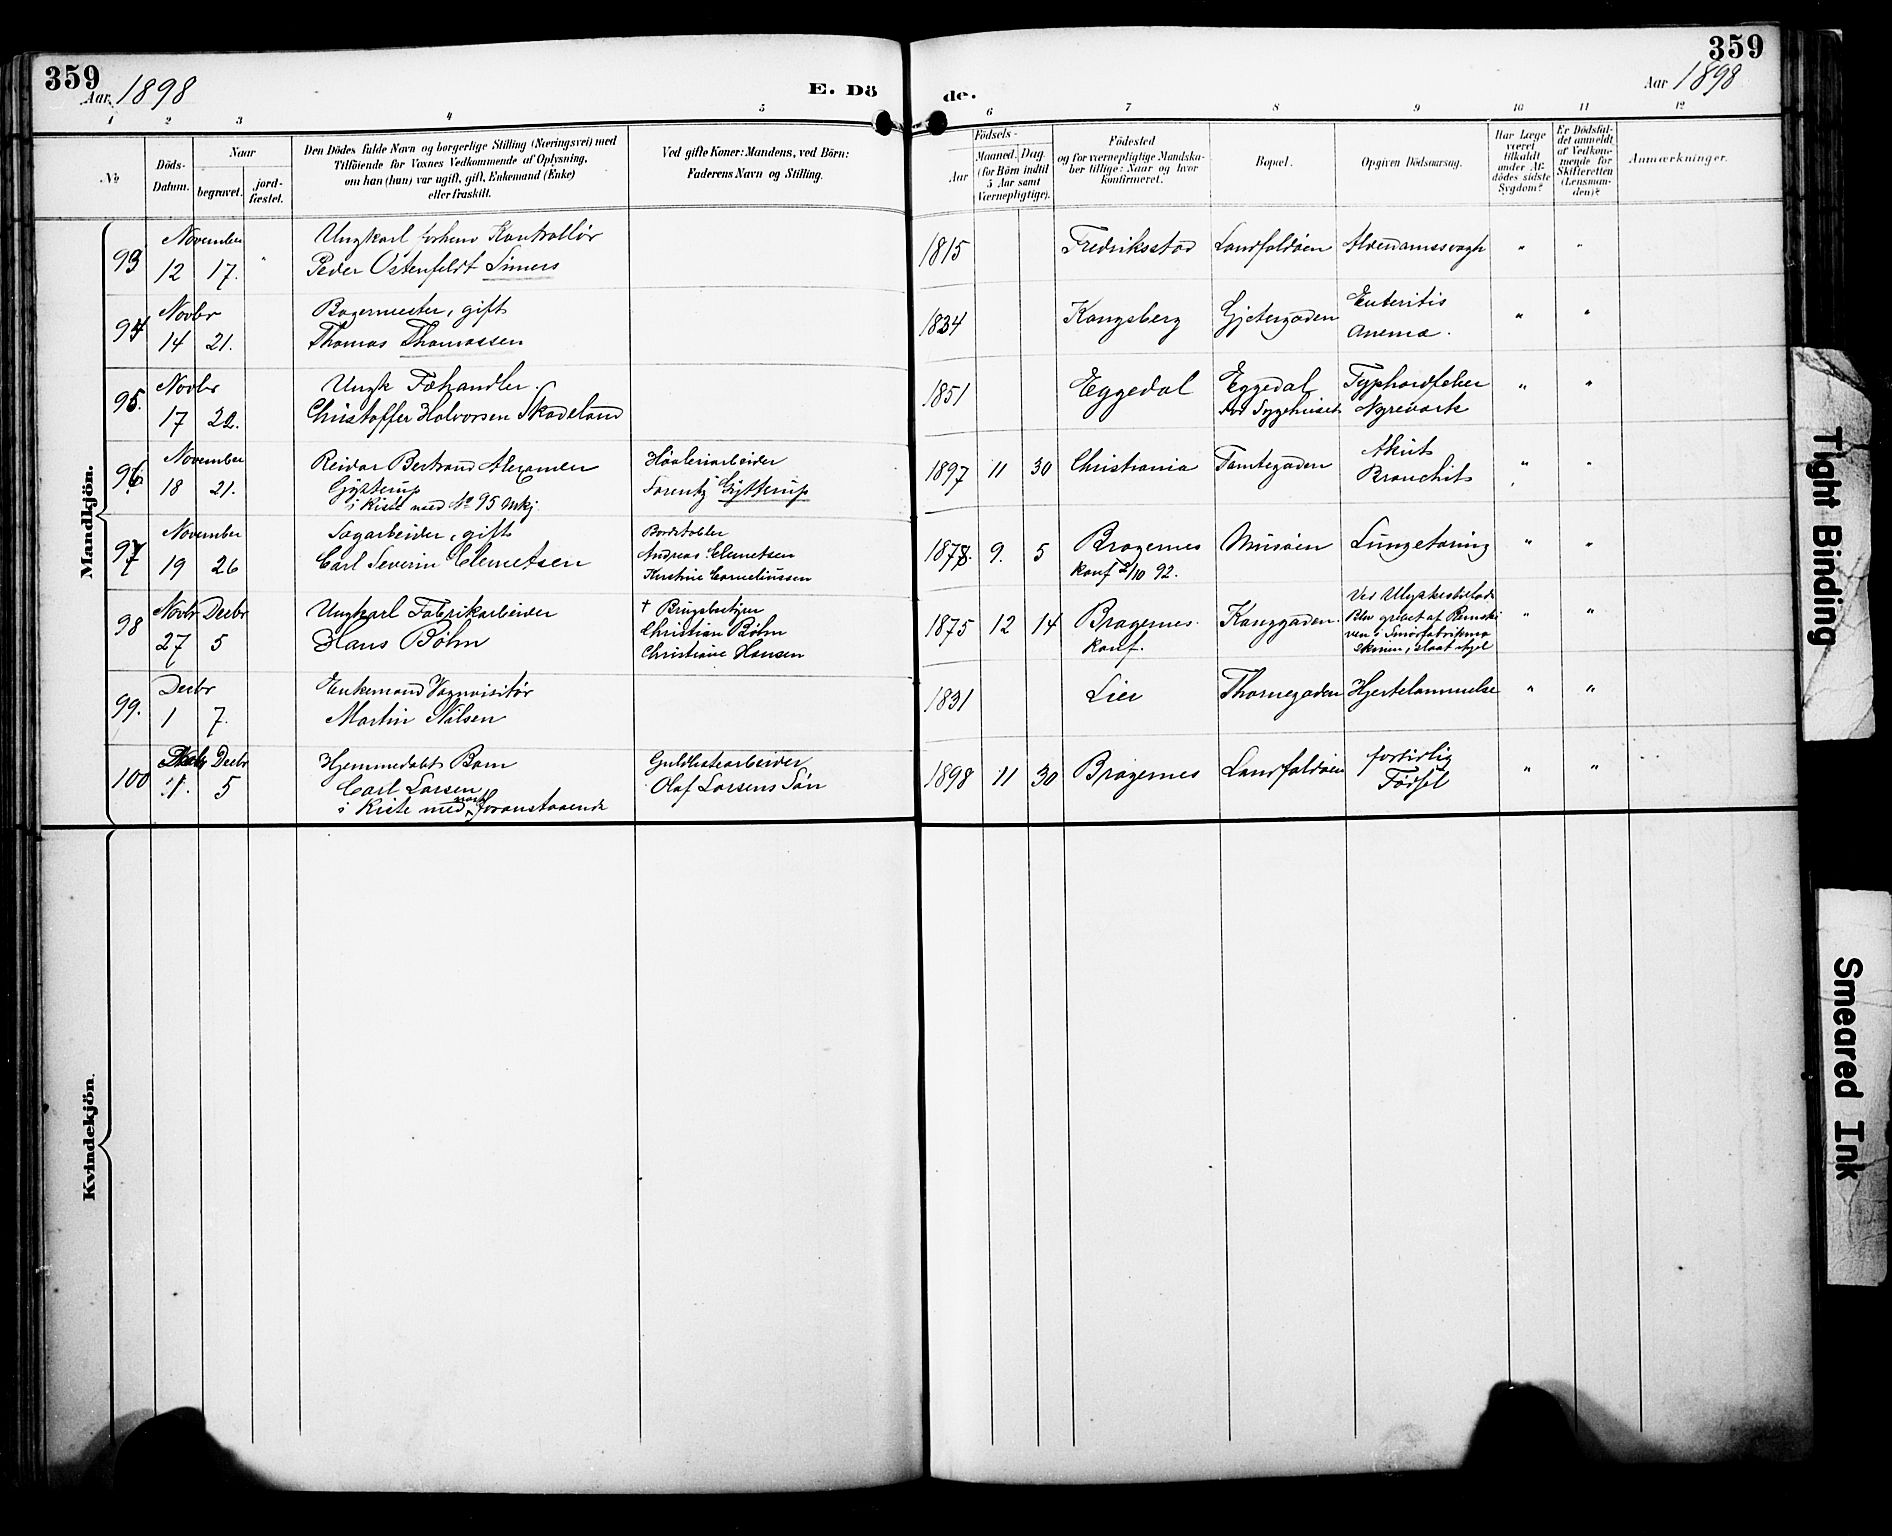 359
Aar 1898
E. Dö
de.
359
Aar 1898
1 2 3 4 5 6 7 8 9 10 11 12
No
Döds-
Datum.
Naar
begravet.
jord-
fæstet.
Den Dödes fulde Navn og borgerlige Stilling (Næringsvei) med
Tilföiende for Voxnes Vedkommende af Oplysning,
om han (hun) var ugift, gift, Enkemand (Enke)
eller fraskilt.
Ved gifte Koner: Mandens, ved Börn:
Faderens Navn og Stilling.
Födsels-
Aar
Maaned.
Dag.
(for Börn indtil
5 Aar samt
Værnepligtige).
Födested
og for værnepligtige Mandska-
ber tillige: Naar og hvor
konfirmeret.
Bopæl.
Opgiven Dödsaarsag.
Har Læge
været
tilkaldt
under Af-
dödes sidste
Sygdom?
Er Dödsfal-
det anmeldt
af Vedkom-
mende for
Skifteretten
(Lensman-
den)?
Anmærkninger.
Mandkjön.
93
November
12 17.
Ungkarl forhenv Kontrollör
Peder Ostenfeldt Simers
1815
Fredriksstad
Landfaldöen
Alderdomssvagh
94
Novbr
14 21.
Bagermester, gift
Thomas Thomassen
1834
Kongsberg
Gjetergaden
Enteritis
Anemia.
95.
Novbr
17 22.
Ungk Fæhandler.
Christoffer Halvorsen Skadeland
1851
Eggedal
Eggedal
ved Sygehuset
Typhoidfeber
Nyrevark
96
November
18 21.
Reidar Bertrand Alexander
Gjytterup
i Kiste med No 95 Mkj.
Høvleriarbeider
Lorentz Gjytterup
1897 11 30
Christiania
Tomtegaden
Akut
Bronchit
97
November
19 26
Sagarbeider, gift
Carl Severin Clemetsen
Bordstabler
Andreas Clemetsen
Kirstine Corneliussen
1878. 9. 5
Bragernes
Konf 2/10 92.
Musöen
Lungetæring
98
Novbr Decbr
27 5
Ungkarl Fabrikarbeider
Hans Böhm
† Brugsbestyrer
Christian Böhm
Christiane Hansen
1875 12 14
Bragernes.
Konf.
Konggaden.
Ved Ulykkestilfælde
Blev grebet af Remski
ven i Smörfabrikma
skinen, slaat ihjel
99.
Decbr
1 7.
Enkemand Vognvisitör
Martin Nilsen
1831
Lier
Thornegaden
Hjertelammelse
100
Decbr
1. 5
Hjemmedøbt Barn
Carl Larsen
i Kiste med næst foranstaaende
Guldlistearbeider
Olaf Larsens Sön
1898 11 30
Bragernes
Landfaldöen
fortidlig
Födsel
Kvindekjön.
Tight Binding
Smeared Ink